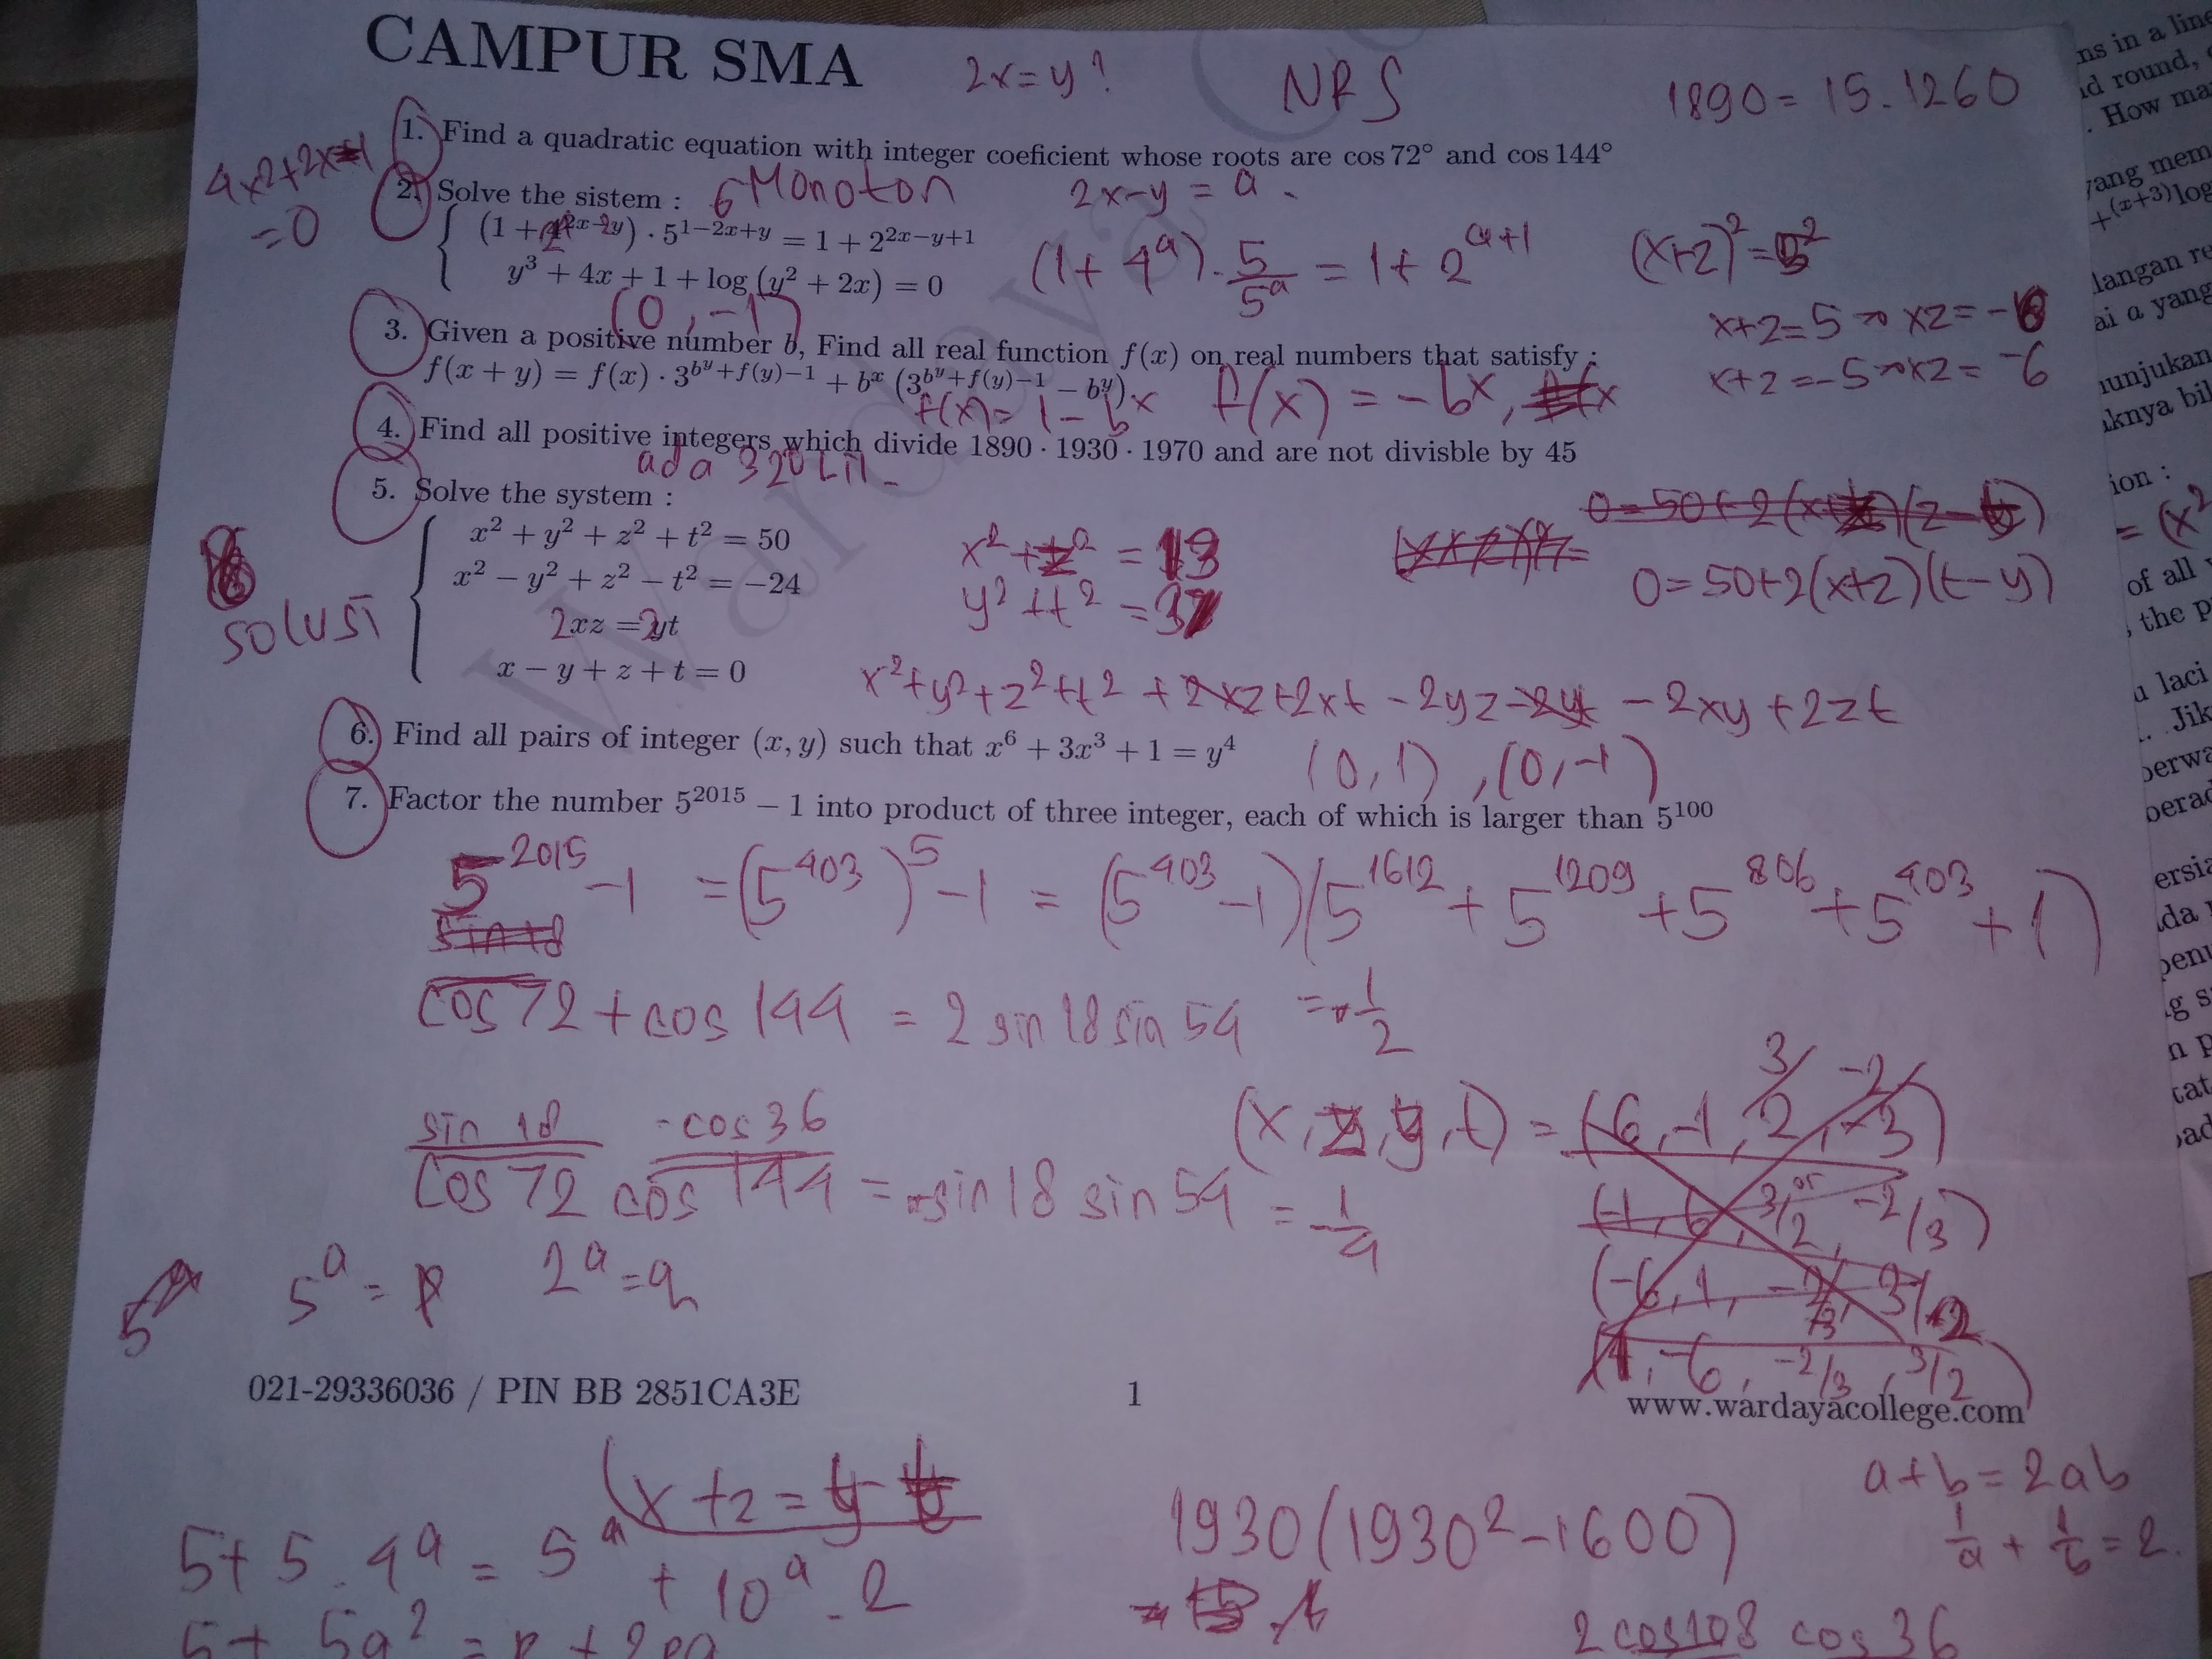 CAMPUR SMA
2x=y?
NRS
1890 = 15.1260
1. Find a quadratic equation with integer coeficient whose roots are cos 72° and cos 144°
4x2+2x-1
=0
2. Solve the sistem :
6 Monoton
2x-y = a
(1 + 4^{2x-y}) · 5^{1−2x+y} = 1 + 2^{2x−y+1}
y³ + 4x + 1 + log (y² + 2x) = 0
(1+4^a) . 5/5^a = 1+2^{a+1}
(x+z)²=5²
x+z=5 → xz=-6
x+z=-5 → xz= -6
(0,-1)
3. Given a positive number b, Find all real function f(x) on real numbers that satisfy :
f(x + y) = f(x) · 3^{b^y+f(y)−1} + b^x (3^{b^y+f(y)−1} − b^y)
f(x)= 1-b^x
f(x) = -b^x,
4. Find all positive integers which divide 1890 · 1930 · 1970 and are not divisble by 45
ada 320 Lil
5. Solve the system :
x² + y² + z² + t² = 50
x² − y² + z² − t² = −24
2xz = 2yt
x − y + z + t = 0
solusi
x²+z² = 13
y²+t² = 37
0=50+2(x+z)(t-y)
x²+y²+z²+t² + 2xz+2xt - 2yz-2yt - 2xy+2zt
6. Find all pairs of integer (x, y) such that x⁶ + 3x³ + 1 = y⁴
(0,1), (0,-1)
7. Factor the number 5^{2015} − 1 into product of three integer, each of which is larger than 5^{100}
5^{2015}-1 = (5^{403})^5-1 = (5^{403}-1)(5^{1612}+5^{1209}+5^{806}+5^{403}+1)
sin 18
cos 72 + cos 144 = 2 sin 18 sin 54 = -1/2
sin 18 -cos 36
cos 72 cos 144 = -sin 18 sin 54 = -1/4
(x,z,y,t) = (-6,-1, 3/2, -2/3)
(-1, 6, 3/2, or -2/3)
(-6, 1, -2/3, 3/2)
(1, -6, -2/3, 3/2)
5^a = p 2^a = q
021-29336036 / PIN BB 2851CA3E
1
www.wardayacollege.com
x+z = y-t
5+5.4^a = 5^a + 10^a . 2
5+ 5q² = p + 2pq
1930(1930²-1600)
a+b = 2ab
1/a + 1/b = 2
2 cos108 cos 36
ns in a line
id round,
. How ma
yang mem
+^{(x+3)}log
langan re
ai a yang
nunjukan
aknya bil
ion :
= (x²
of all
, the p
u laci
. Jik
ersia
ada
g s
n p
tat
Wardaya